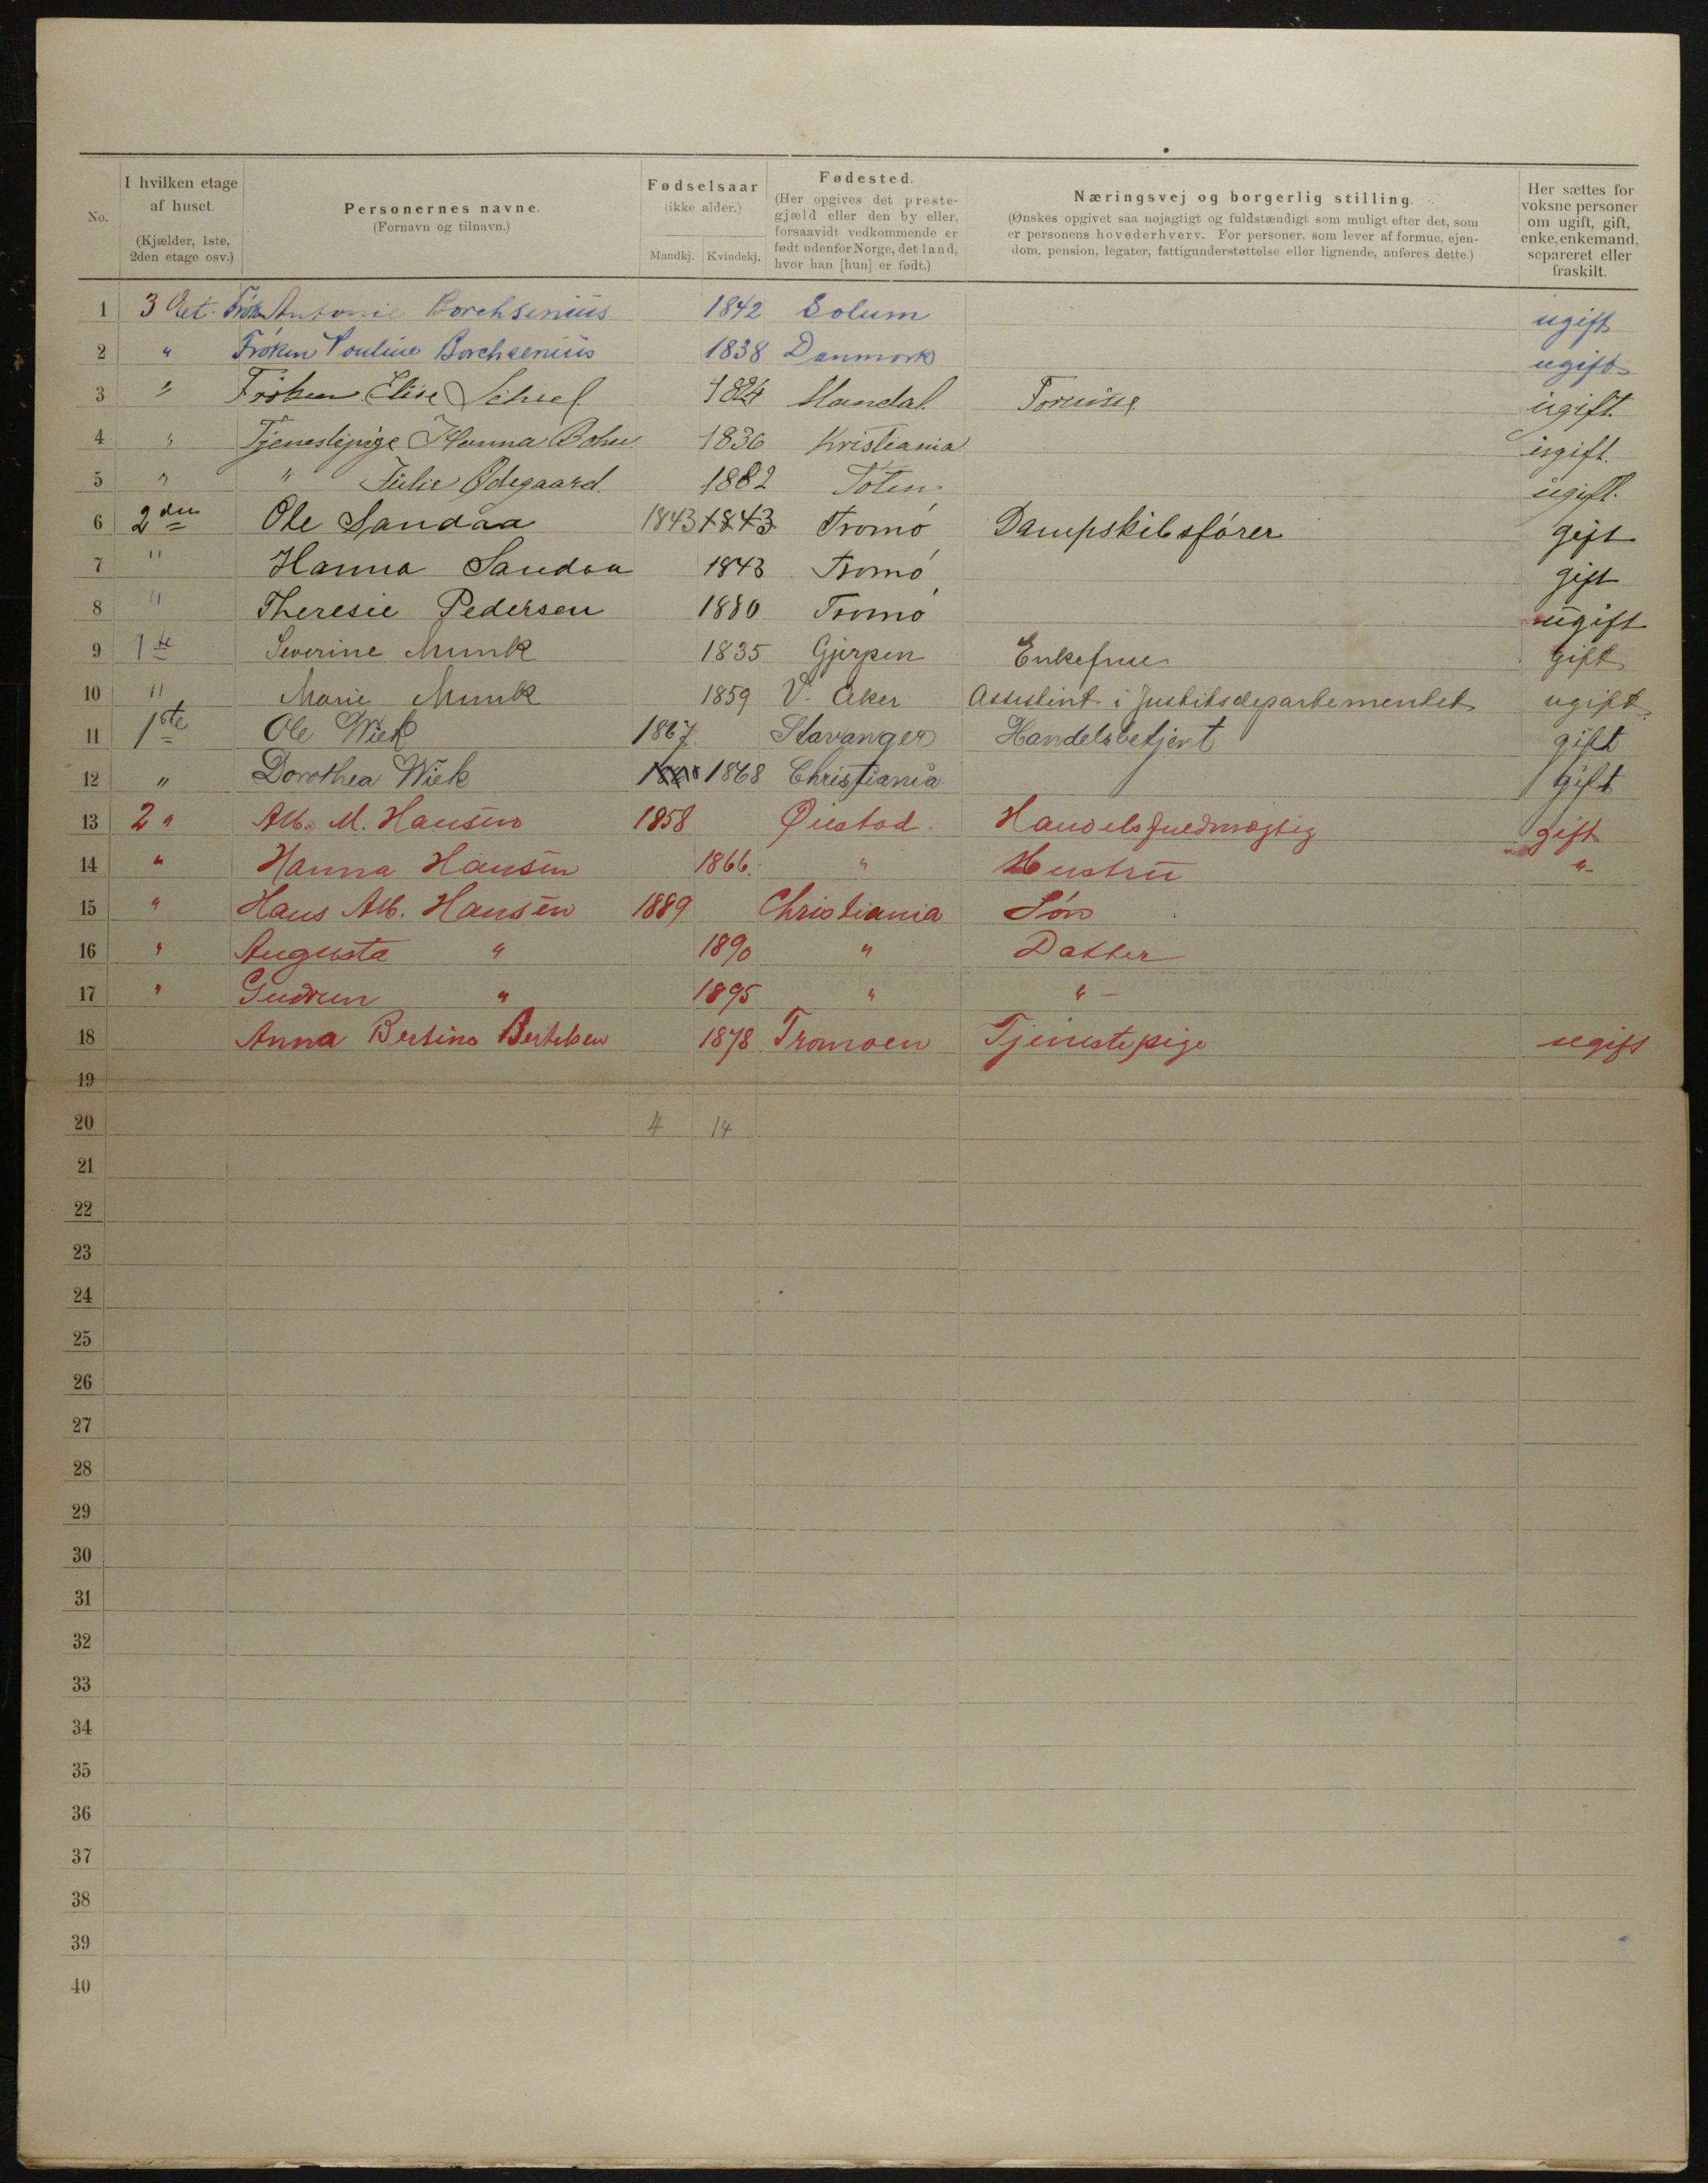 No.
I hvilken etage af huset. (Kjælder, 1ste, 2den etage osv.)
Personernes navne. (Fornavn og tilnavn.)
Fødselsaar (ikke alder.) Mandkj. Kvindekj.
Fødested. (Her opgives det preste-gjæld eller den by eller, forsaavidt vedkommende er født udenfor Norge, det land, hvor han [hun] er født.)
Næringsvej og borgerlig stilling. (Ønskes opgivet saa nøjagtigt og fuldstændigt som muligt efter det, som er personens hovederhverv. For personer, som lever af formue, ejen-dom, pension, legater, fattigunderstøttelse eller lignende, anføres dette.)
Her sættes for voksne personer om ugift, gift, enke, enkemand, separeret eller fraskilt.
1 3 Eet. Frøken Antonie Borchsenius 1842 Solum ugift
2 " Frøken Pouline Borchsenius 1838 Danmark ugift
3 " Frøken Elise 1824 Mandal. ugift.
4 " Tjenestepige Hanna Bohn 1836 Kristiania ugift.
5 " " Julie Ødegaard. 1882 Toten ugift.
6 2den Ole Sandaa 1843 1843 Tromö Dampskibsförer gift
7 " Hanna Sandaa 1843 Tromö gift
8 " Theresie Pedersen 1880 Tromö ugift
9 1ste Severine Munk 1835 Gjerpen Enkefrue gift
10 " Marie Munk 1859 V. Aker Assistent i Justitsdepartementet ugift.
11 1ste Ole Wiek 1867 Stavanger Handelsbetjent gift
12 " Dorothea Wiek 1868 Christiania gift
13 2 " Alb. M. Hansen 1858 Øiestad. Handelsfuldmægtig gift
14 " Hanna Hansen 1866. " Hustru "
15 " Hans Alb. Hansen 1889 Christiania Søn
16 " Augusta " 1890 " Datter
17 " Gudrun " 1895 " " -
18 Anna Bertine Bertelsen 1878 Tromøen Tjenestepige ugift
19
20 4 14
21
22
23
24
25
26
27
28
29
30
31
32
33
34
35
36
37
38
39
40